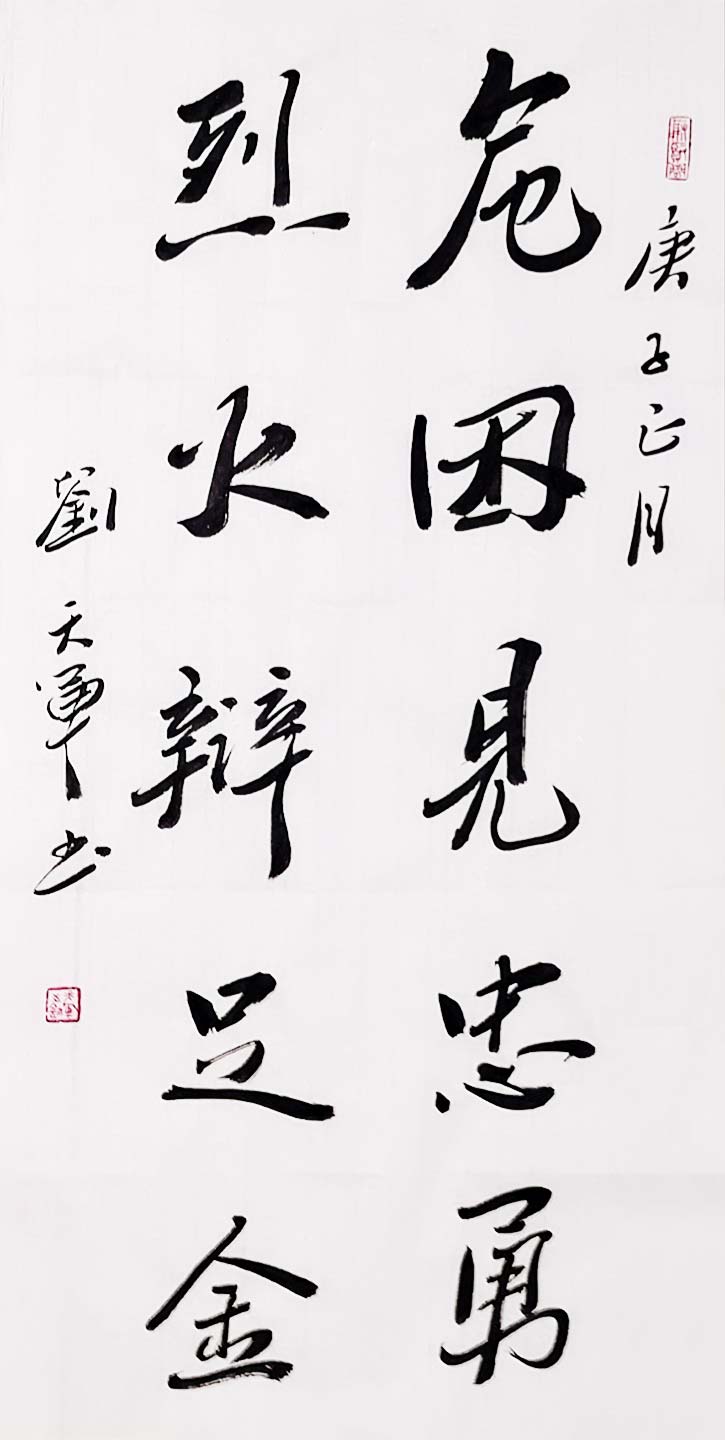 庚子正月
危困見忠勇
烈火辯足金
劉天軍书